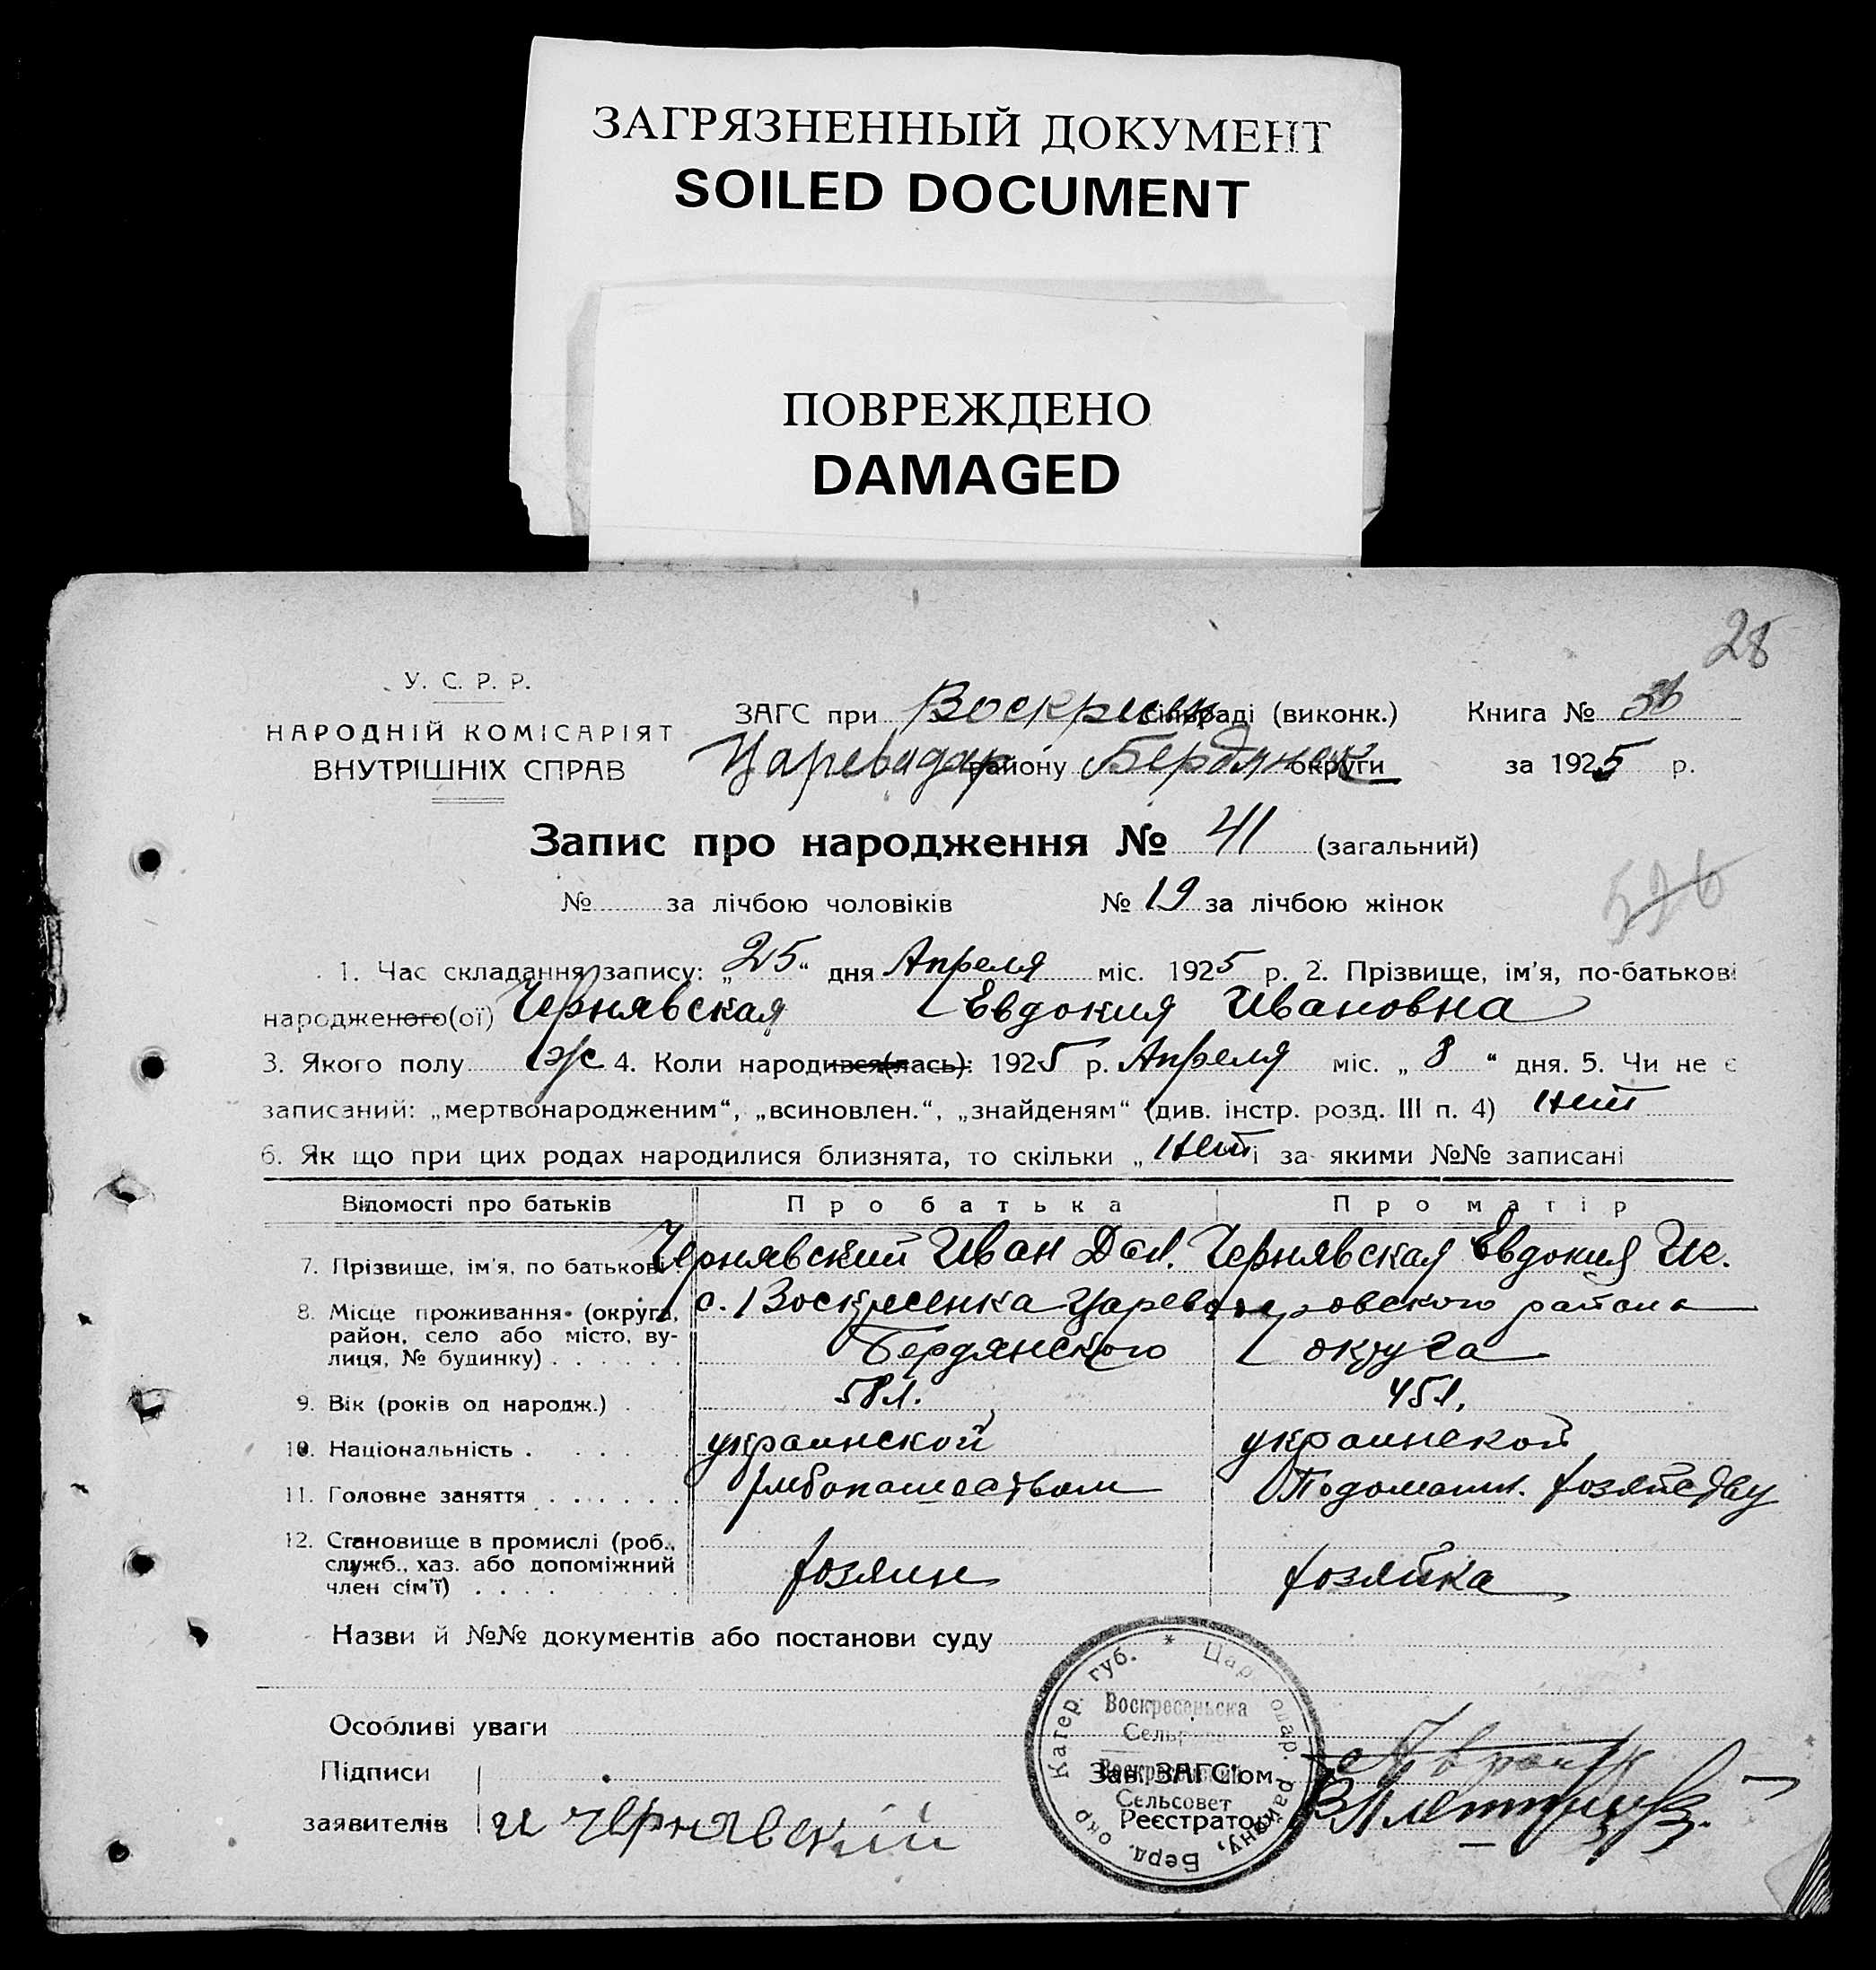 ЗАГРЯЗНЕННЫЙ ДОКУМЕНТ
SOILED DOCUMENT
ПОВРЕЖДЕНО
DAMAGED
28
У. С. Р. Р.
НАРОДНІЙ КОМІСАРІЯТ
ВНУТРІШНІХ СПРАВ
ЗАГС при Воскрисен сільраді (виконк.) Книга №
Цареводар району Бердянск округи за 1925 р.
Запис про народження № 41 (загальний)
526
№ за лічбою чоловіків № 19 за лічбою жінок
1. Час складання запису: „25“ дня Апреля міс. 1925 р. 2. Прізвище, ім'я, по-батькові
народженого(ої) Чернявская Евдокия Ивановна
3. Якого полу ж 4. Коли народився(лась): 1925 р. Апреля міс. „8“ дня. 5. Чи не є
записаний: „мертвонародженим“, „всиновлен.“, „знайденям“ (див. інстр. розд. III п. 4) нет
6. Як що при цих родах народилися близнята, то скільки „ нет і за якими №№ записані
Відомості про батьків Про батька Про матір
7. Прізвище, ім'я, по батькові Чернявский Иван Дан. Чернявская Евдокия Ик.
8. Місце проживання (округа, с. Воскресенка Цареводаровского района
район, село або місто, ву-
лиця, № будинку) . . . . . . Бердянского округа
9. Вік (років од народж.) . 58 л. 45 л.
10. Національність . . . . украинской украинской
11. Головне заняття . . . . . . хлебопашеством По домашн. хозяйству
12. Становище в промислі (роб.,
служб., хаз. або допоміжний хозяин хозяйка
член сім'ї) . . . .
Назви й №№ документів або постанови суду
Катер. губ. * Цар одар. району, Берд. окр
Воскресеньска
Сельрада
Воскресенский
Сельсовет
Особливі уваги
Підписи Зав. ЗАГС'ом
заявителів и Чернявский Реєстратор